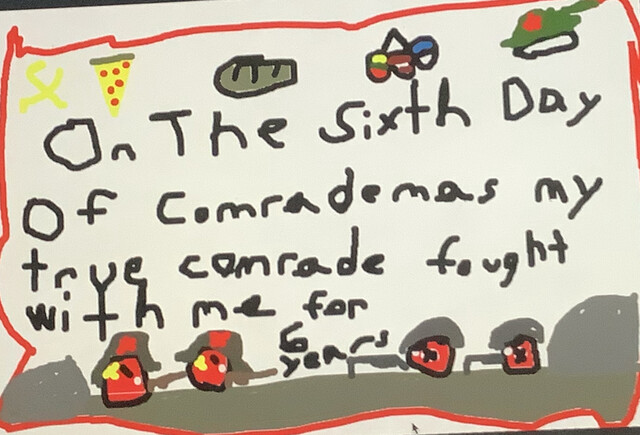 On The Sixth Day
Of Comrademas my
true comrade fought
with me for
6
years